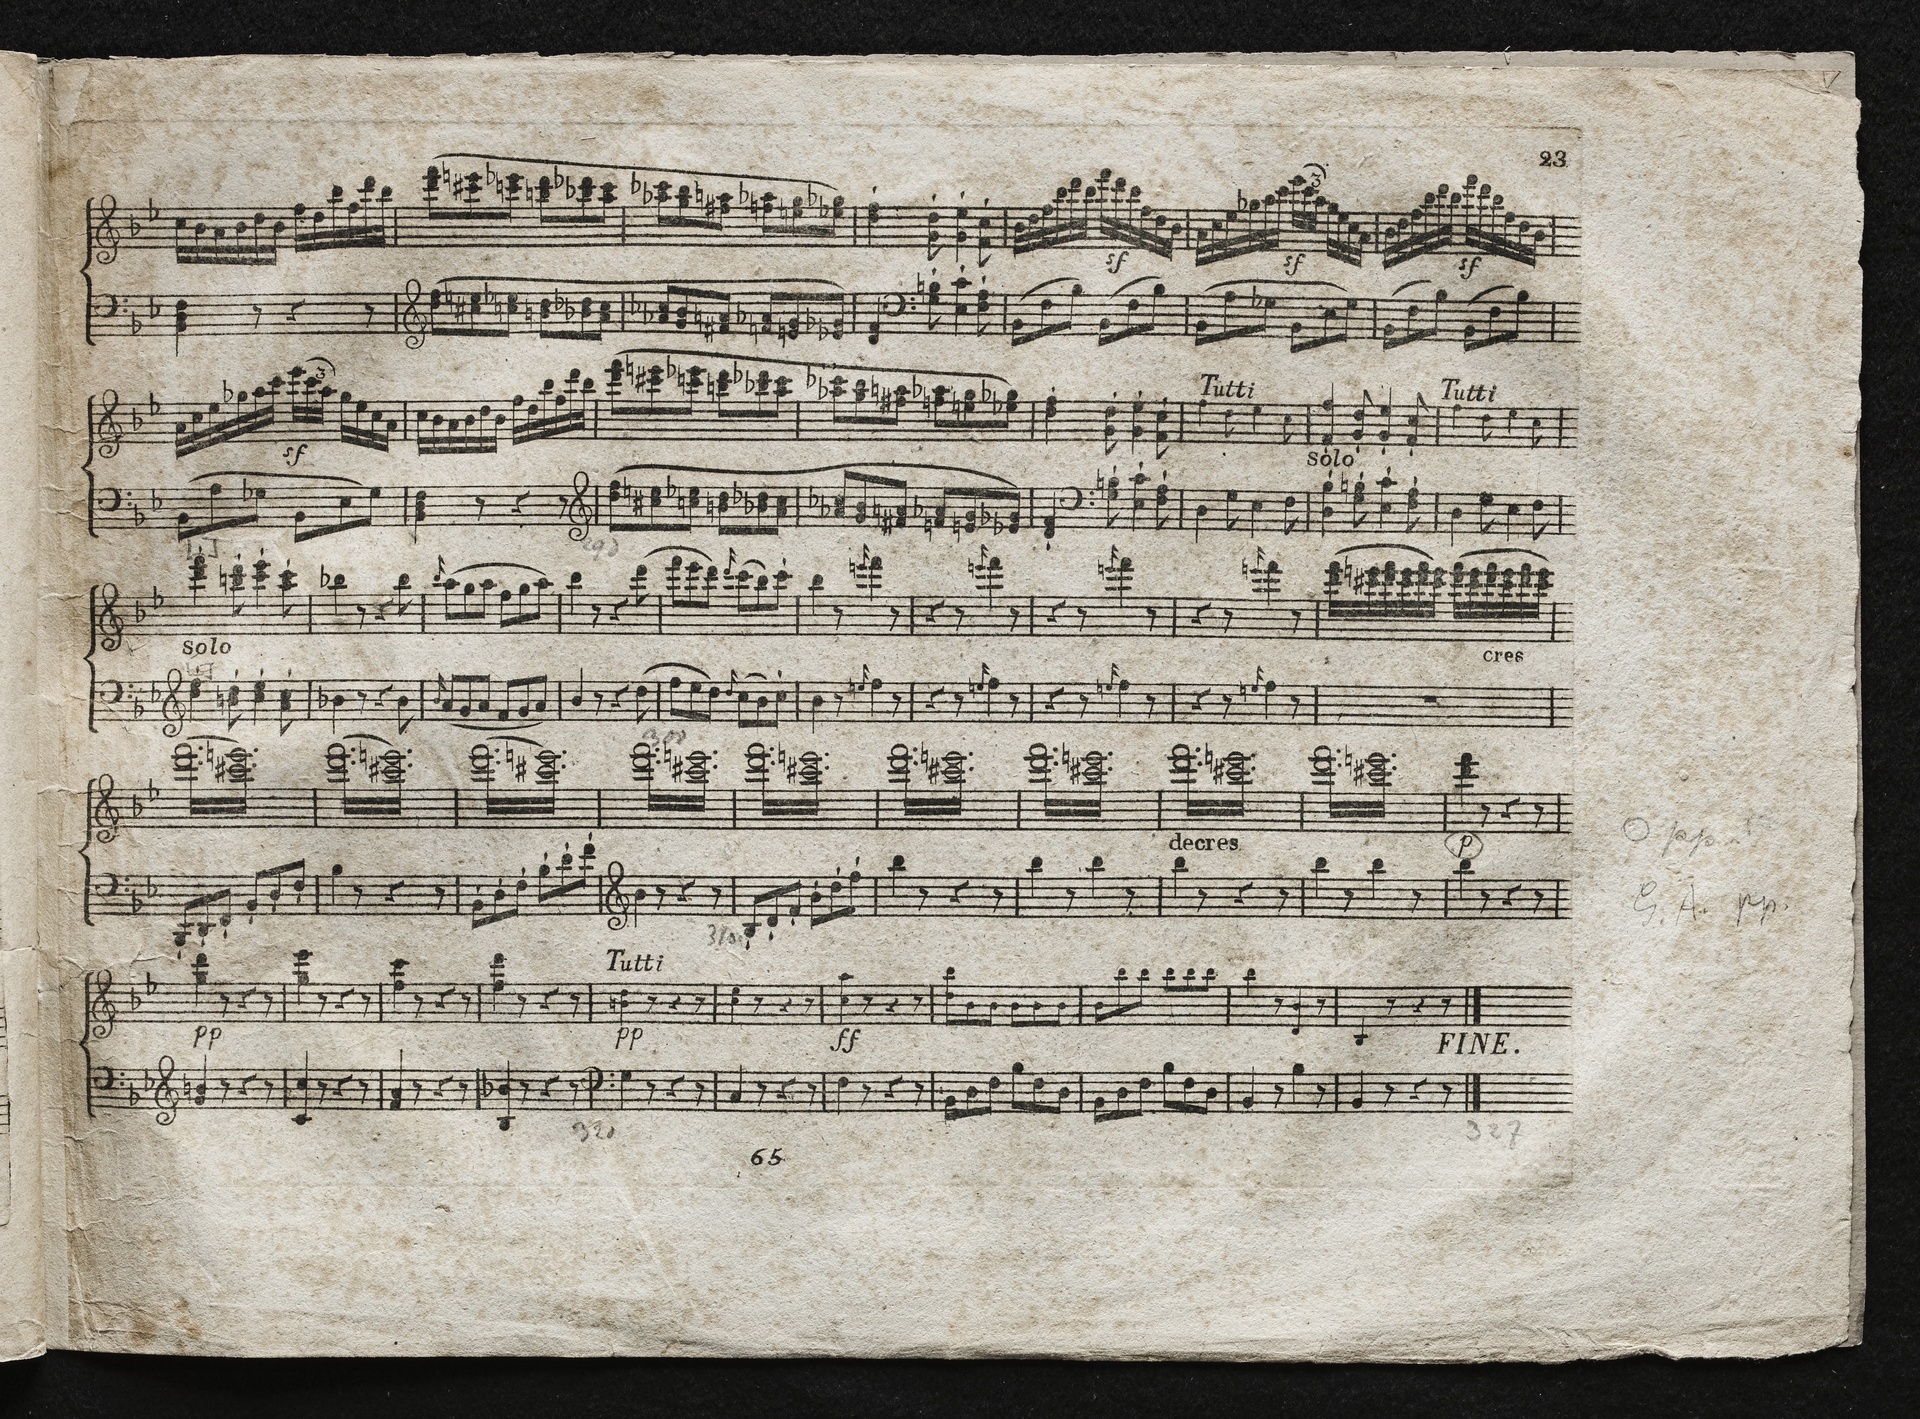 23
3
sf sf sf
3
Tutti Tutti
sf
solo
290
solo
cres
300
decres p
G. A. pp.
310
Tutti
pp pp ff FINE.
320 327
65